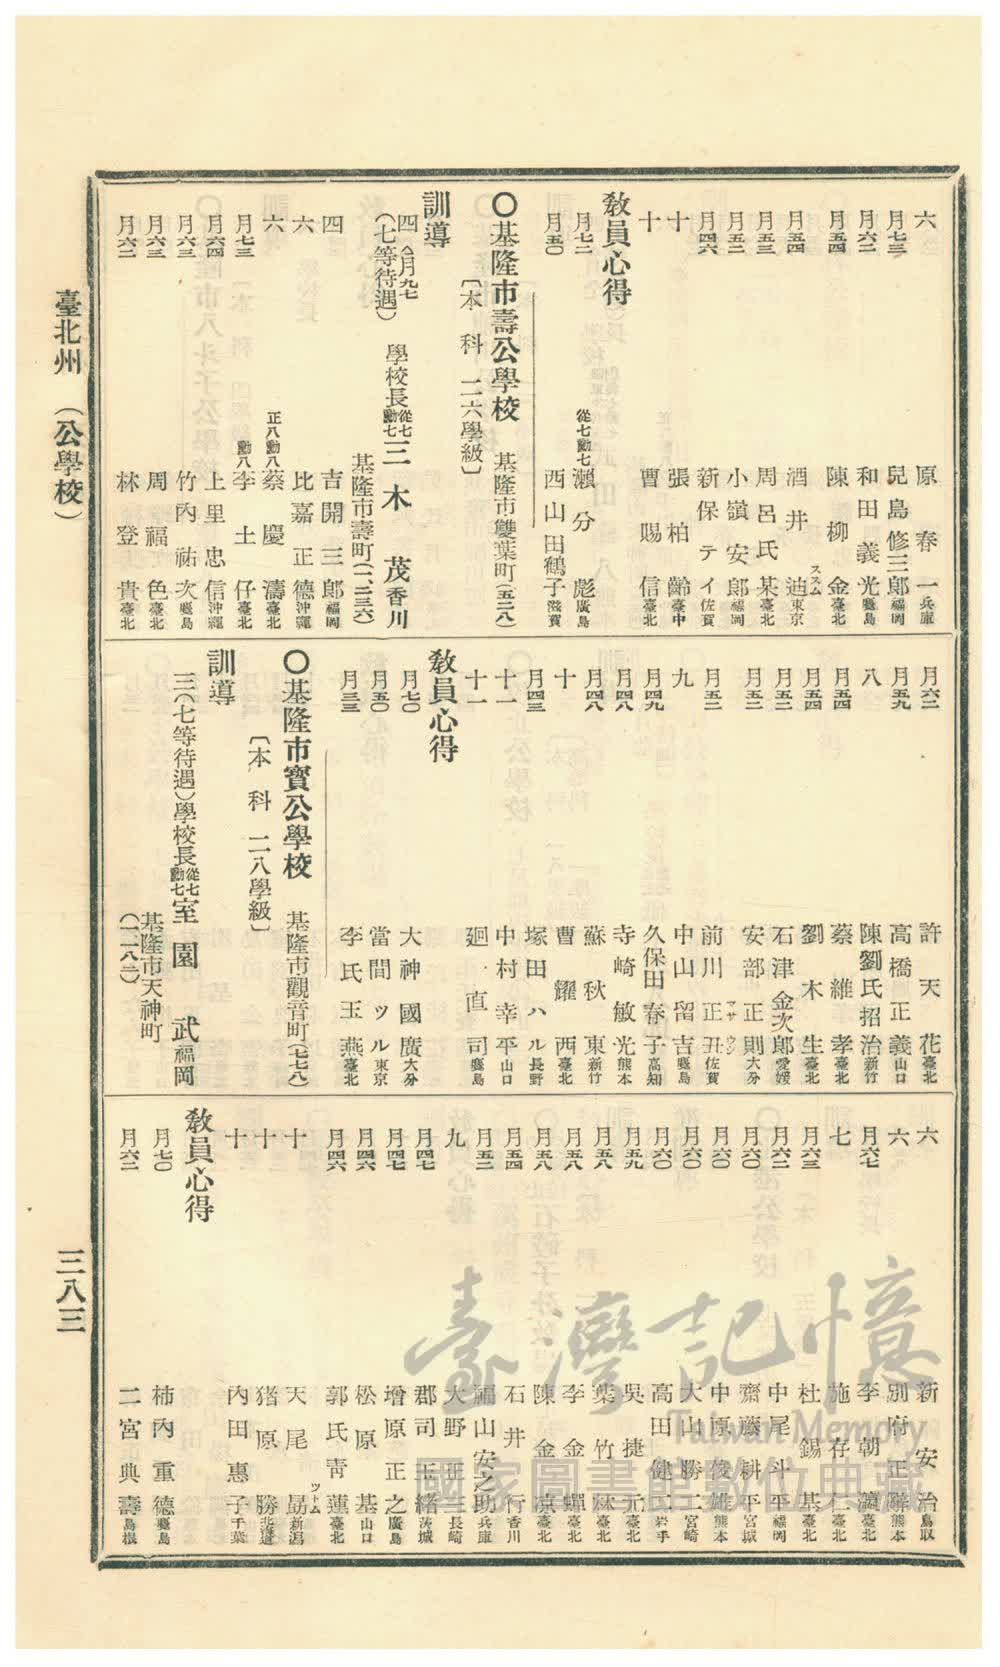 六 原春一 兵庫
月七三 兒島修三郎 福岡
月六二 和田義光 鹿島
月五四 陳柳金 臺北
月五四 酒井迪 ススム 東京
月五三 周呂氏某 臺北
月五二 小嶺安郎 福岡
月四六 新保テイ 佐賀
十 張柏齡 臺中
十 曹賜信 臺北
教員心得
月七二 從七勳七 瀨分彪 廣島
月五〇 西山田鶴子 滋賀
〇基隆市壽公學校 基隆市雙葉町(五二八)
〔本科 二六學級〕
訓導
四 八月九七 學校長 從七勳七 三木茂 香川
(七等待遇) 基隆市壽町(二、二三六)
四 吉開三郎 福岡
六 比嘉正德 沖繩
六 正八勳八 蔡慶濤 臺北
月七三 勳八 李土仔 臺北
月六四 上里忠信 沖繩
月六三 竹內祐次 鹿島
月六三 周福色 臺北
月六二 林登貴 臺北
月六二 許天花 臺北
月五九 高橋正義 山口
八 陳劉氏招治 新竹
月五四 蔡維孝 臺北
月五四 劉木生 臺北
月五二 石津金次郎 愛媛
月五二 安部正則 大分
月五二 前川正丑 マサウシ 佐賀
九 中山留吉 鹿島
月四九 久保田春子 高知
月四八 寺崎敏光 熊本
月四八 蘇秋東 新竹
十 曹耀西 臺北
月四三 塚田ハル 長野
十一 中村幸平 山口
十一 廻直司 鹿島
教員心得
月七〇 大神國廣 大分
月五〇 當間ツル 東京
月三三 李氏玉燕 臺北
〇基隆市寶公學校 基隆市觀音町(七七八)
〔本科 二八學級〕
訓導
三(七等待遇)學校長 從七勳七 室園武 福岡
基隆市天神町
(一、一八二)
六 新安治 鳥取
六 別府正 熊本
月六七 李朝瀛 臺北
七 施存仁 臺北
月六三 杜錫基 臺北
月六二 中尾斗平 福岡
月六〇 齋藤耕平 宮城
月六〇 中原俊雄 熊本
月六〇 大山勝二 宮崎
月六〇 高田健二 岩手
月五九 吳捷元 臺北
月五八 葉竹林 臺北
月五八 李金蟬 臺北
月五八 陳金涼 臺北
月五四 石井行 香川
月五二 福山安之助 兵庫
九 大野正三 長崎
月四七 郡司玉緒 茨城
月四七 增原正之 廣島
月四六 松原基 山口
月四六 郭氏靑蓮 臺北
十 天尾勗 ツトム 新潟
十 猪原勝 北海道
十 內田惠子 千葉
教員心得
月七〇 柿內重德 鹿島
月六二 二宮典壽 島根
臺北州 (公學校)
三八三
臺灣記憶
Taiwan Memory
國家圖書館數位典藏